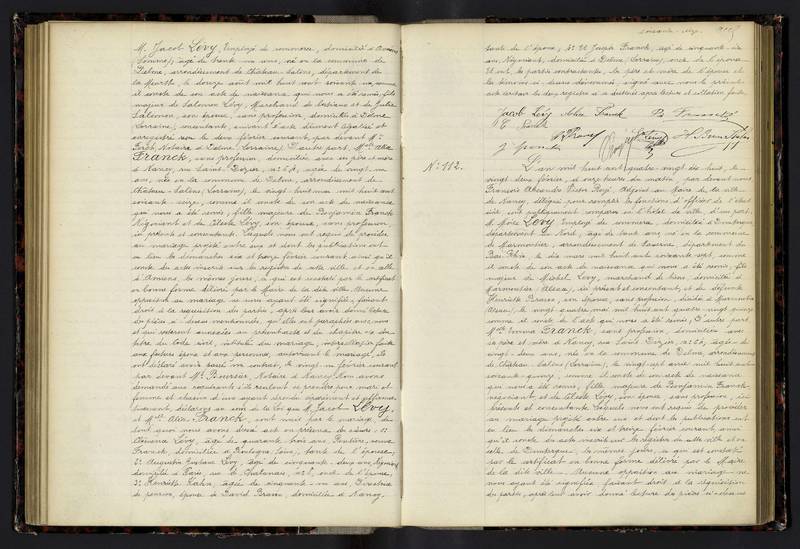 M. Jacob Lévy, Employé de commerce, domicilié à Amiens
(Somme), âgé de trente un ans, né en la commune de
Delme, arrondissement de Château-Salins, département de
la Meurthe, le douze août mil huit cent soixante six, comme
il conste de son acte de naissance qui nous a été remis, fils
majeur de Salomon Lévy, Marchand de bestiaux et de Julie
Salomon, son épouse, sans profession, domiciliés à Delme
(Lorraine), consentants, suivant l'acte dûment légalisé et
enregistré
Notaire à Delme (Lorraine). D'autre part, Melle Alice
Franck, sans profession, domiciliée avec ses père et mère
à Nancy, rue Saint Dizier, âgée de vingt un
ans, née en la commune de Delme, arrondissement de
Château-Salins (Lorraine), le vingt huit mai mil huit cent
soixante seize, comme il conste de son acte de naissance
qui nous a été remis, fille majeure de Benjamin Franck
Négociant et de Céleste Lévy, son épouse, sans profession,
ici présents et consentants. Lesquels nous ont requis de procéder
au mariage projeté entre eux et dont les publications ont
eu lieu les dimanches six et treize février courant ainsi qu'il
conste des actes inscrits sur les registres de cette ville et en celle
d'Amiens, les mêmes jours, à qui est constaté par le certificat
en bonne forme délivré par le Maire de la dite ville. Aucune
opposition au mariage ne nous ayant été signifiée, faisant
droit à la réquisition des parties, après leur avoir donné lecture
des pièces ci-dessus mentionnées, qu'elles ont paraphées avec nous
et qui resteront annexées au présent acte et du chapitre six du
titre du Code civil, intitulé du mariage, interpellation faite
aux futurs époux et aux personnes autorisant le mariage, ils
ont déclaré avoir passé un contrat, le vingt un février courant
par devant Me Notaire à Nancy. Nous avons
demandé aux requérants s'ils veulent se prendre pour mari et
femme et chacun d'eux ayant répondu séparément et affirma-
tivement, déclarons au nom de la loi que M. Jacob Lévy,
et Melle Alice Franck, sont unis par le mariage, de
tout quoi nous avons dressé acte en présence des sieurs : 1°
Lévy, âgée de quarante trois ans, Rentière, veuve
Franck, domiciliée à Boulogne tante de l'épouse,
2° Augustin Gustave Lévy, âgé de cinquante-deux ans, Négociant
domicilié à Paris rue oncle de l'épouse,
3° Henriette Kahn, âgée de cinquante-un ans, Directrice
de pension, épouse de David domiciliée à Nancy,
tante de l'épouse, 4° et Joseph Franck, âgé de cinquante-six
ans, Négociant, domicilié à Delme (Lorraine), oncle de l'épouse.
Et ont, les parties contractantes, les père et mère de l'épouse et
les témoins ci-dessus dénommés, signé avec nous le présent
acte sur les deux registres à ce destinés après lecture et collation faite.
Jacob Lévy Alice Franck B. Franck
N° 112.
L'an mil huit cent quatre-vingt dix huit, le
vingt deux février, à onze heures du matin, par devant nous
François Alexandre Victor Adjoint au Maire de la ville
de Nancy, délégué pour remplir les fonctions d'officier de l'état
civil, ont publiquement comparu en l'hôtel de ville, d'une part,
M. Moïse Lévy Employé de commerce, domicilié à Dunkerque
département du Nord, âgé de trente ans, né en la commune
de Marmoutier, arrondissement de Saverne, département du
Bas-Rhin, le dix mars mil huit cent soixante sept, comme
il conste de son acte de naissance qui nous a été remis, fils
majeur de Michel Lévy, marchand de biens, domicilié à
Marmoutier (Alsace), ici présent et consentant, et de défunte
Henriette son épouse, sans profession, décédée à Marmoutier
(Alsace), le vingt quatre mai mil huit cent quatre-vingt quinze
comme il conste de l'acte qui nous a été remis. D'autre part
Melle Emma Franck, sans profession, domiciliée avec
ses père et mère à Nancy, rue Saint Dizier, âgée de
vingt-deux ans, née en la commune de Delme, arrondissement
de Château-Salins (Lorraine), le vingt sept avril mil huit cent
soixante-quinze, comme il conste de son acte de naissance
qui nous a été remis, fille majeure de Benjamin Franck
négociant, et de Céleste Lévy, son épouse, sans profession, ici
présents et consentants. Lesquels nous ont requis de procéder
au mariage projeté entre eux et dont les publications ont
eu lieu les dimanches six et treize février courant, ainsi
qu'il conste des actes inscrits sur les registres de cette ville et en
celle de Dunkerque, les mêmes jours, à qui est constaté
par le certificat en bonne forme délivré par le Maire
de la dite ville. Aucune opposition au mariage ne
nous ayant été signifiée, faisant droit à la réquisition
des parties, après leur avoir donné lecture des pièces ci-dessus